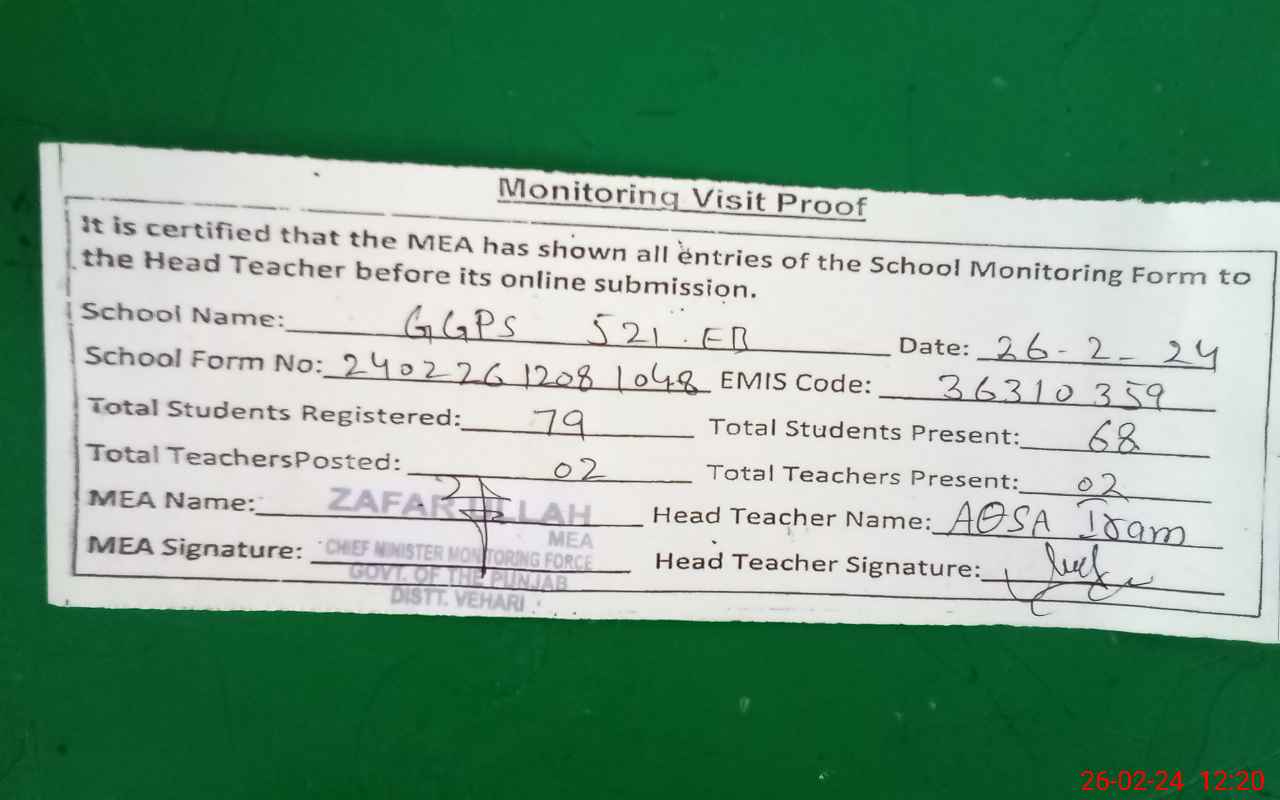 Monitoring Visit Proof
It is certified that the MEA has shown all entries of the School Monitoring Form to
the Head Teacher before its online submission.
School Name: GGPS 521.EB Date: 26-2-24
School Form No: 2402261208 1048 EMIS Code: 36310359
Total Students Registered: 79 Total Students Present: 68
Total TeachersPosted: 02 Total Teachers Present: 02
MEA Name: ZAFAR ULLAH Head Teacher Name: Iram
MEA
MEA Signature: CHIEF MINISTER MONITORING FORCE Head Teacher Signature:
GOVT. OF THE PUNJAB
DISTT. VEHARI
26-02-24 12:20